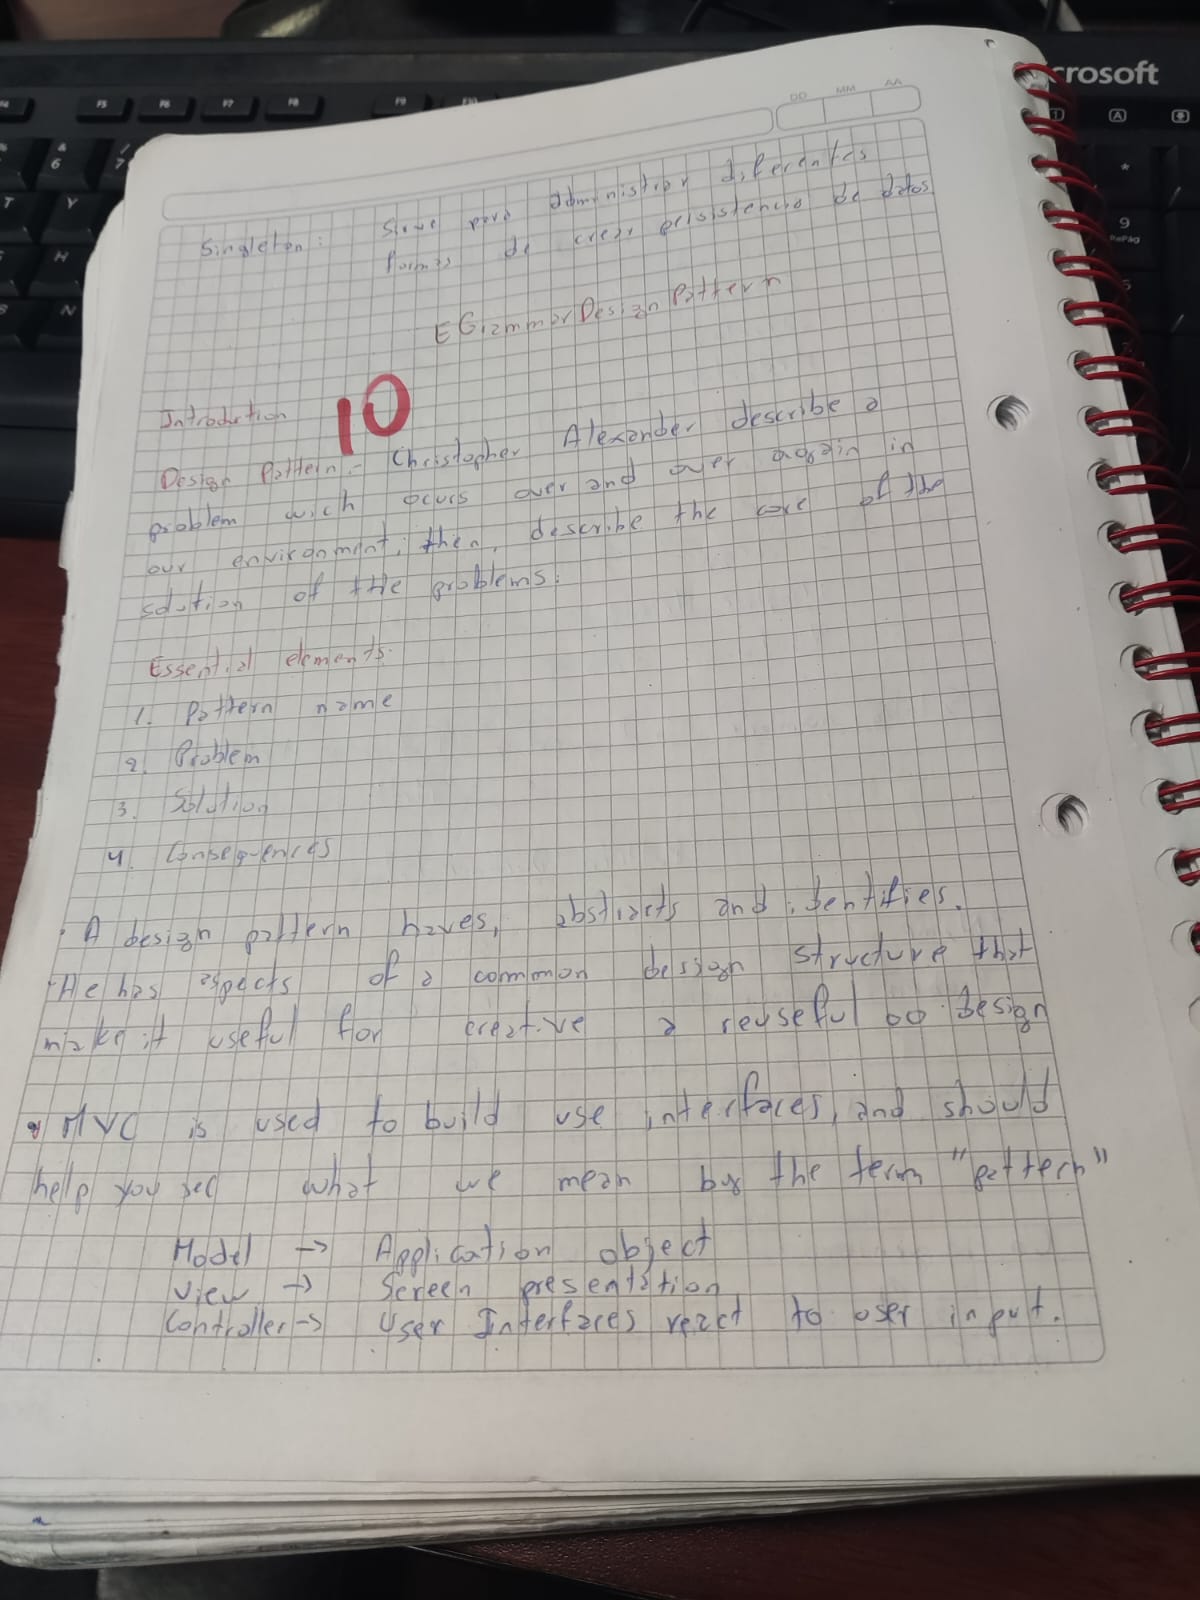 crosoft
F5 F6 F7 F8 F9 F10
DD MM AA
Singleton: Sirve para administrar diferentes
formas de crear persistencia de datos
Design Pattern
Introduction
10
Design Pattern.- Christopher Alexander describe a
problem wich ocurs over and over again in
our environment; then, describe the core of the
solution of the problems.
Essential elements.
1. Pattern name
2. Problem
3. Solution
4. Consequences
· A design pattern haves, abstracts and identifies.
· He has aspects of a common design structure that
make it useful for creative a reuseful oo design
• MVC is used to build use interfaces, and should
help you see what we mean by the term "pattern"
Model → Application object
View → Screen presentation
Controller → User Interfaces react to user input.